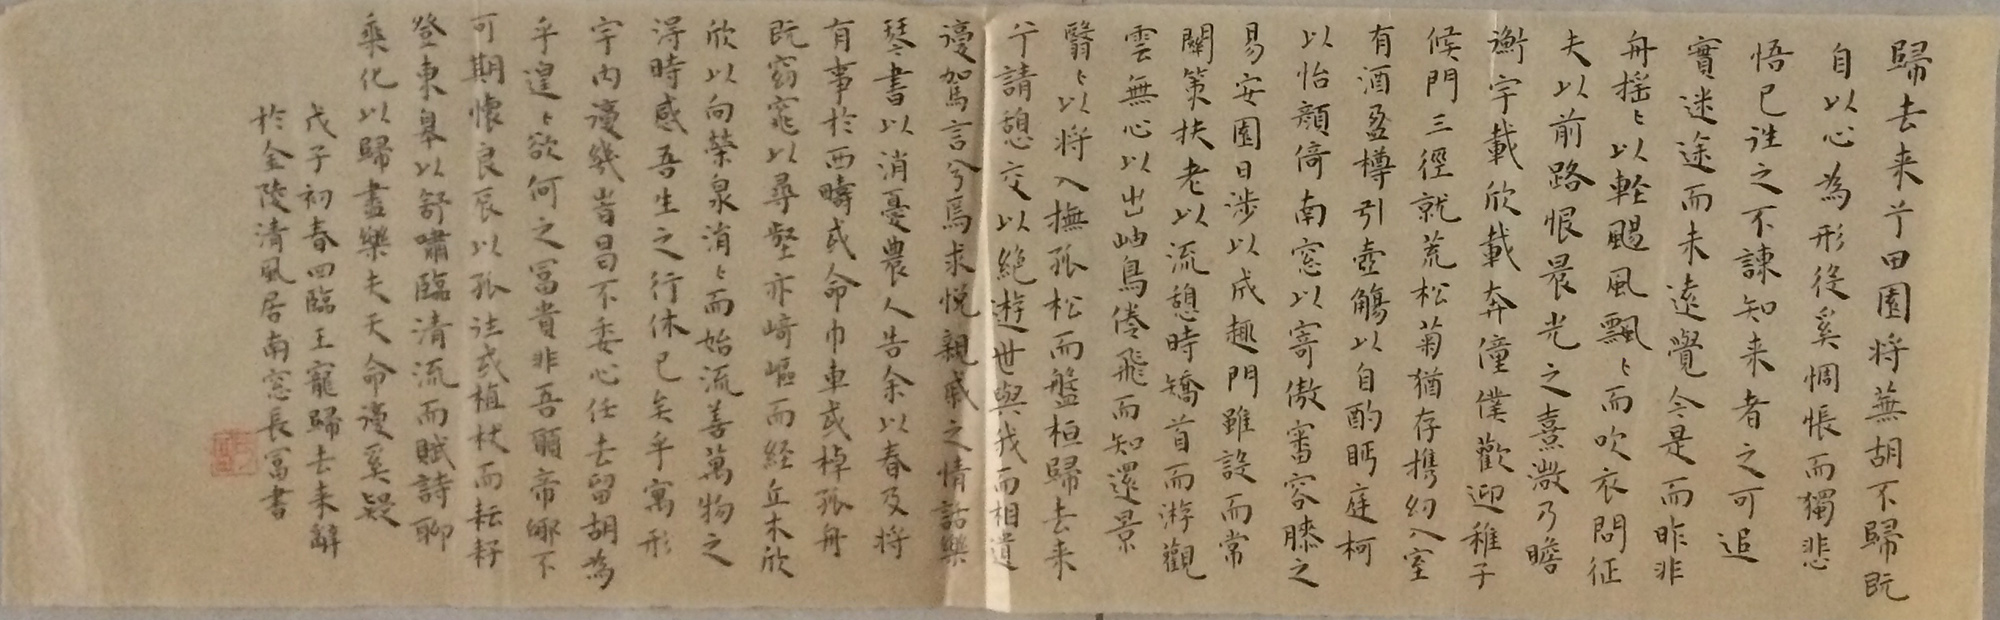 歸去来兮田園将蕪胡不歸既
自以心為形役奚惆悵而獨悲
悟已往之不諫知来者之可追
實迷途而未遠覺今是而昨非
舟摇〻以輕颺風飄〻而吹衣問征
夫以前路恨晨光之熹微乃瞻
衡宇載欣載奔僮僕歡迎稚子
候門三徑就荒松菊猶存携幼入室
有酒盈樽引壺觴以自酌眄庭柯
以怡顔倚南窓以寄傲審容膝之
易安園日涉以成趣門雖設而常
關策扶老以流憩時矯首而游觀
雲無心以出岫鳥倦飛而知還景
翳〻以将入撫孤松而盤桓歸去来
兮請憩交以絶遊世與我而相遺
復駕言兮焉求悦親戚之情話樂
琴書以消憂農人告余以春及将
有事於西疇或命巾車或棹孤舟
既窈窕以尋壑亦崎嶇而経丘木欣
欣以向榮泉涓〻而始流善萬物之
得時感吾生之行休已矣乎寓形
宇内復幾旹曷不委心任去留胡為
乎遑〻欲何之冨貴非吾願帝鄉不
可期懷良辰以孤往或植杖而耘耔
登東皋以舒嘯臨清流而賦詩聊
乘化以歸盡樂夫天命復奚疑
戊子初春四臨王寵歸去来辭
於金陵清風居南窓長冨書